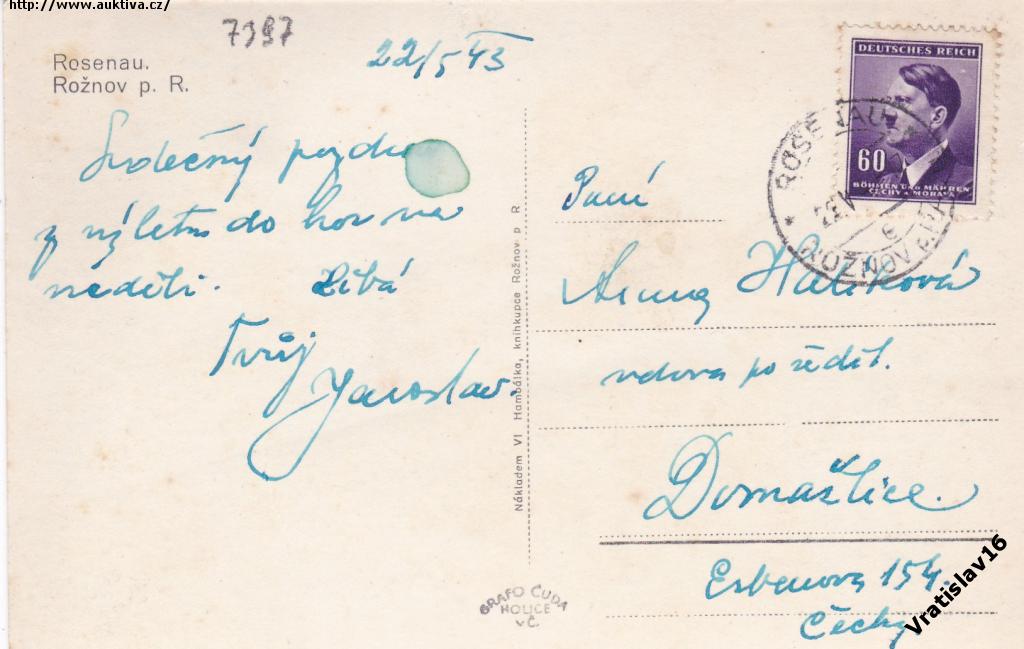 http://www.auktiva.cz/
7397
Rosenau.
Rožnov p. R.
22/5 43
Srdečný pozdrav
z výletu do hor na
neděli. Líbá
Tvůj
Jaroslav.
Nákladem Vl Hambálka, knihkupce Rožnov p R
GRAFO ČUDA
HOLICE
v Č.
DEUTSCHES REICH
60
BÖHMEN UND MÄHREN
ČECHY A MORAVA
ROSENAU
ROŽNOV P.
Paní
Anna Halíková
vdova po ředit.
Domažlice.
Erbenova 154.
Čechy
Vratislav16